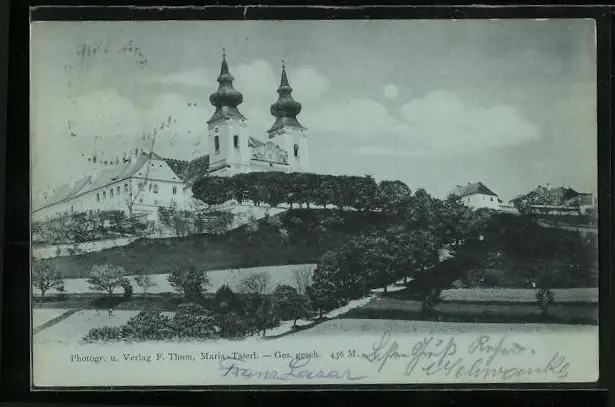 Photogr. u. Verlag F. Thom, Maria-Taferl. — Ges. gesch. 436 M.
Franz Lasar
Gruß